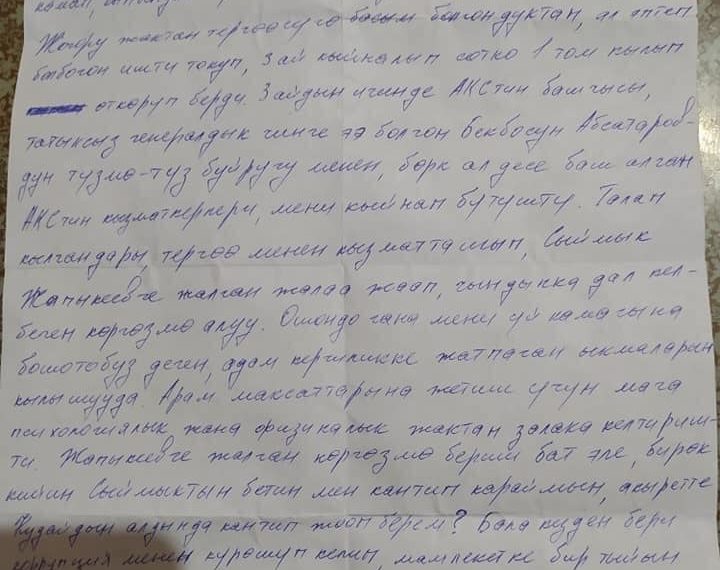 Жогору жактан тергөөгө басым болгондуктан, ал эптеп
болбогон ишти токуп, 3 ай кыйналып сотко 1 том кылып
өткөрүп берди. 3 айдын ичинде АКСтин башчысы,
татыксыз генералдык чинге ээ болгон Бекбосун Абсатаров-
дун түзмө-түз буйругу менен, бөрк ал десе баш алган
АКСтин кызматкерлери, мени кыйнап бүтүштү. Талап
кылгандары, тергөө менен кызматташып, Сыймык
Жапыкеевге жалган жалаа жаап, чындыкка дал кел-
беген көргөзмө алуу. Ошондо гана мени үй камагына
бошотобуз деген, адам керчиликке жатпаган ыкмаларын
кылышууда. Арам максаттарына жетиш үчүн мага
психологиялык жана физикалык жактан залака келтириш-
ти. Жапыкеевге жалган көргөзмө бериш бат эле, бирок
кийин Сыймыктын бетин мен кантип караймын, акыретте
Кудайдын алдында кантип жооп берем? Бала кезден бери
коррупция менен күрөшүп келип, мамлекетке бир тыйын